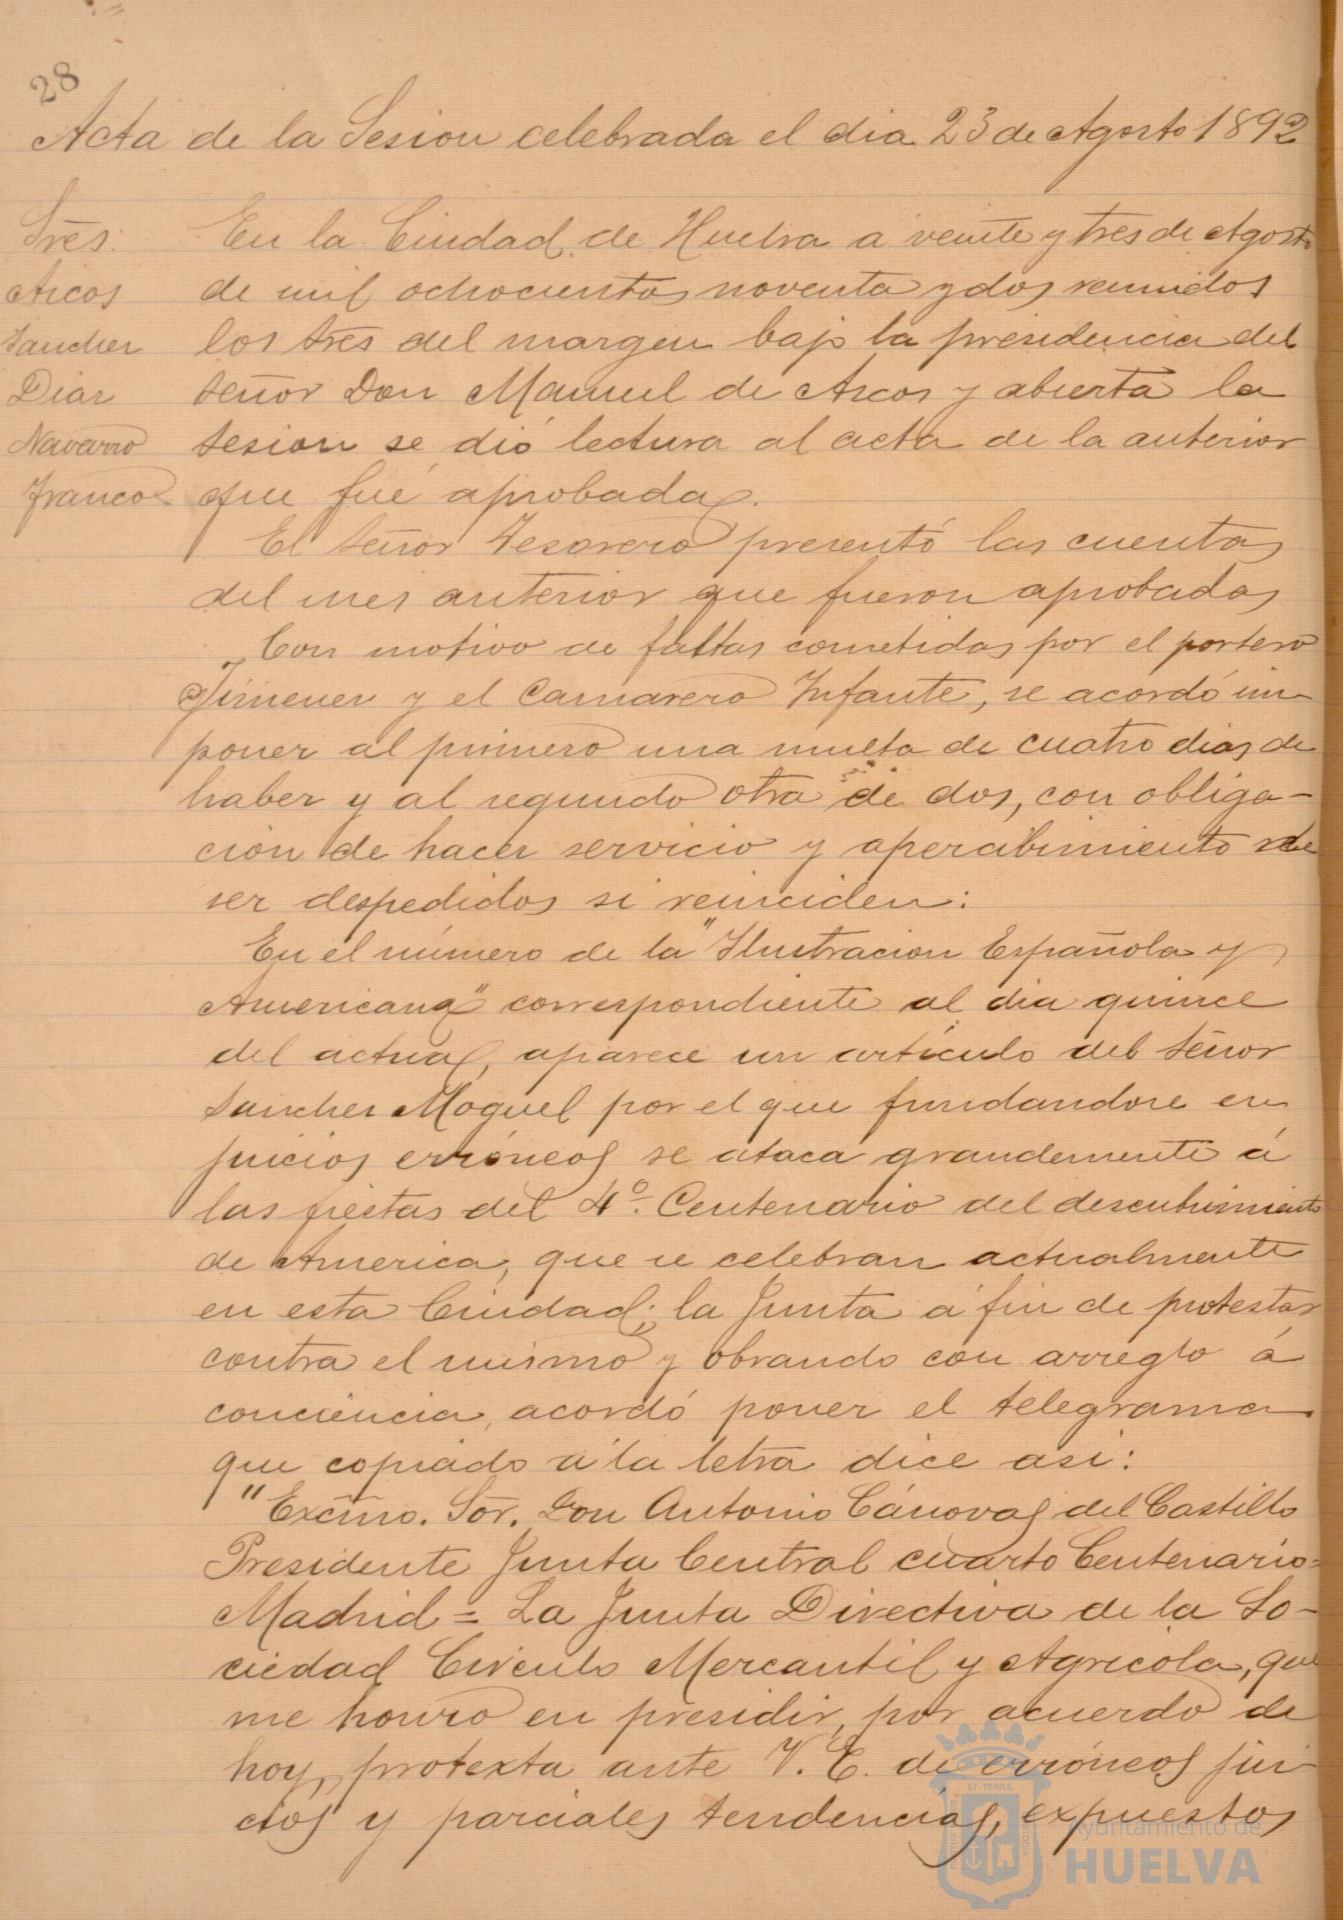 28
Acta de la Sesion celebrada el dia 23 de Agosto 1892
Sres.
Arcos
Sanchez
Diaz
Navarro
Franco
En la Ciudad de Huelva a veinte y tres de Agosto
de mil ochocientos noventa y dos reunidos
los Sres del margen bajo la presidencia del
Señor Don Manuel de Arcos y abierta la
Sesion se dió lectura al acta de la anterior
que fué aprobada.
El Señor Tesorero presentó las cuentas
del mes anterior que fueron aprobadas
Con motivo de faltas cometidas por el portero
Jimenez y el Camarero Infante, se acordó im-
poner al primero una multa de cuatro dias de
haber y al segundo otra de dos, con obliga-
ción de hacer servicio y apercibimiento de
ser despedidos si reinciden:
En el número de la "Ilustracion Española y
Americana" correspondiente al dia quince
del actual, aparece un artículo del Señor
Sanchez Moguel por el que fundandose en
juicios erróneos se ataca grandemente á
las fiestas del 4º. Centenario del descubrimiento
de America, que se celebran actualmente
en esta Ciudad; la Junta á fin de protestar
contra el mismo y obrando con arreglo á
conciencia, acordó poner el telegrama
que copiado á la letra dice asi:
"Excmo. Sor. Don Antonio Cánovas del Castillo
Presidente Junta Central cuarto Centenario=
Madrid = La Junta Directiva de la So-
ciedad Circulo Mercantil y Agricola, que
me honro en presidir, por acuerdo de
hoy, protexta ante V. E. de erróneos jui-
cios y parciales tendencias, expuestos
ET TERRÆ
Ayuntamiento de
HUELVA